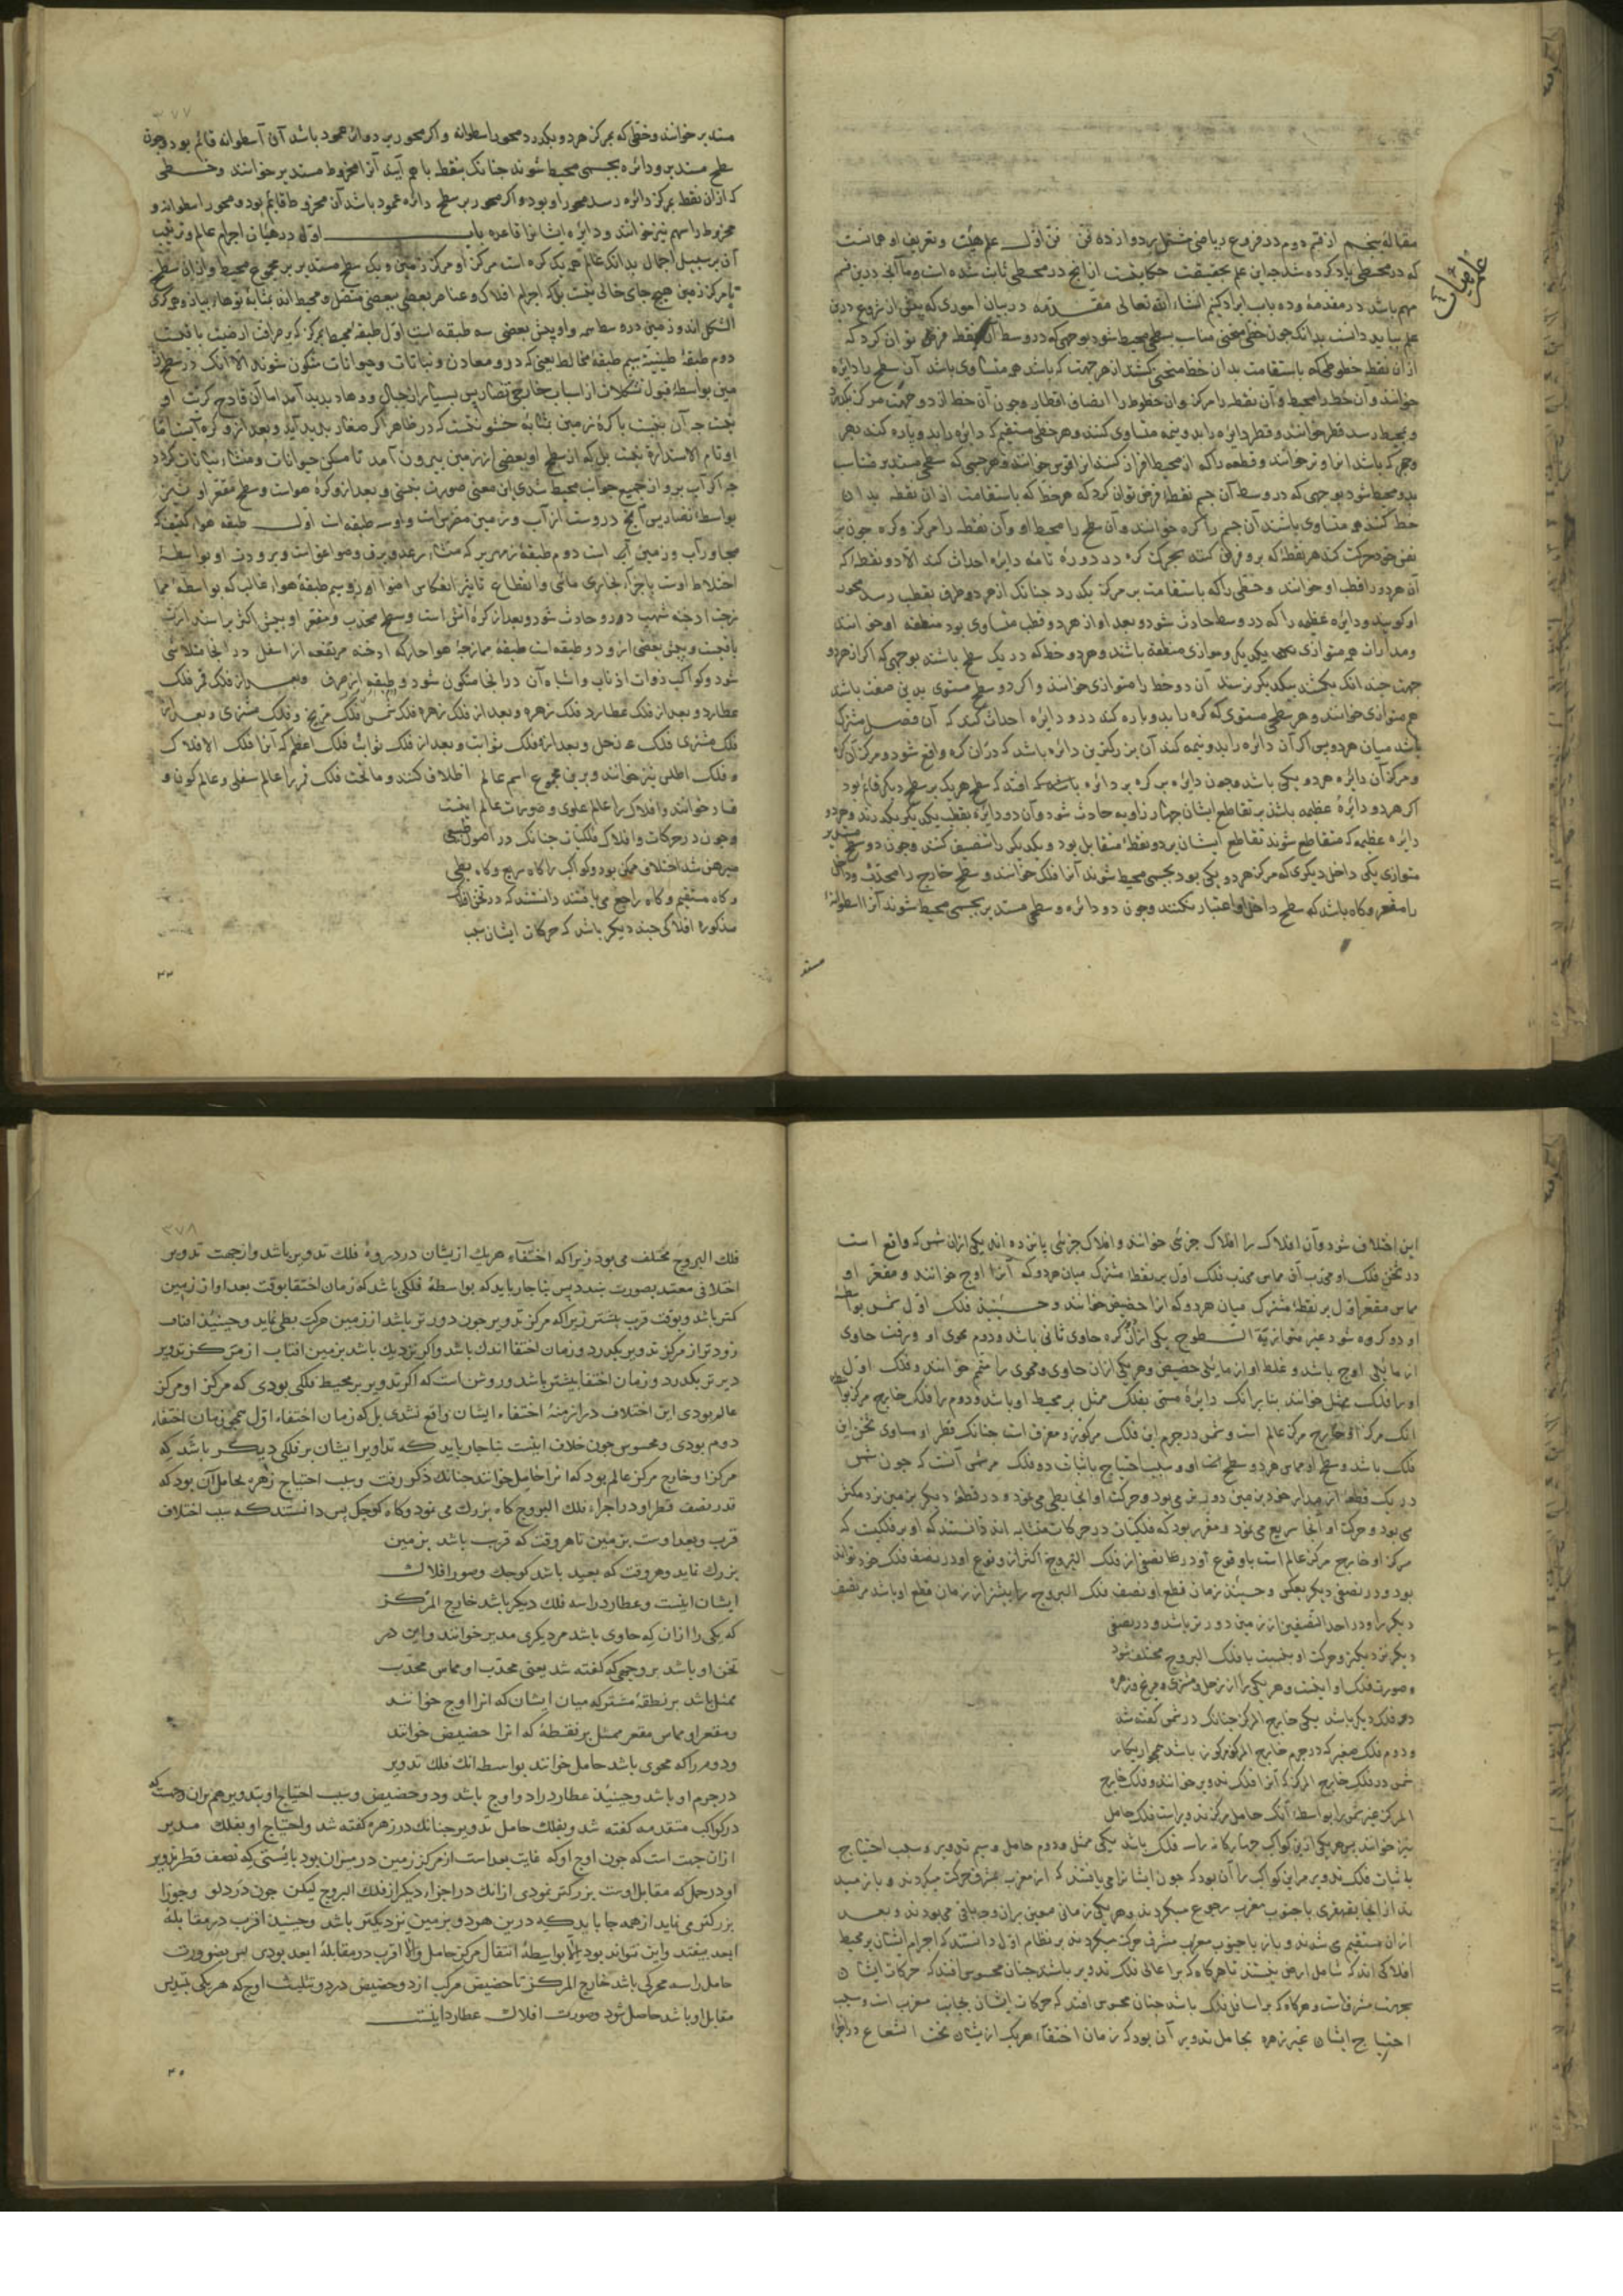 مقاله پنجم از قسم دوم در فروع ریاضی مشتمل بر دوازده فن فن اول علم هیئت و تعریف او همانست
که در مجسطی یاد کرده شد چه این علم بحقیقت حکایتیست از آنچ در مجسطی ثابت شده است و ما آنچ درین قسم
مهم باشد در مقدمه و ده باب ایراد کنیم انشاء الله تعالی مقدمه در بیان اموری که پیش از شروع درین
علم بباید دانست بدانکه چون خطی منحنی مناسب بسطحی محیط شود بوجهی که در وسط آن نقطه فرض توان کرد که
از آن نقطه خطوطی که باستقامت بدان خط منحنی کشند از هر جهت که باشد همه متساوی باشد آن سطح را دایره
خوانند و آن خط را محیط و آن نقطه را مرکز و آن خطوط را انصاف اقطار و چون آن خط از دو جهت مرکز بگذرد
و بمحیط رسد قطر خوانند و قطر دایره را بدو نیمه متساوی کنند و هر خطی مستقیم که دایره را بدو پاره کند بهر
وجهی که باشد آنرا وتر خوانند و قطعه را که از محیط افراز کند آنرا قوس خوانند و هر جسمی که سطحی مستدیر متناسب
بدو محیط شود بوجهی که در وسط آن جسم نقطه فرض توان کرد که هر خط که باستقامت از آن نقطه بدان
خط کنند همه متساوی باشند آن جسم را کره خوانند و آن سطح را محیط او و آن نقطه را مرکز و کره چون بر
نفس خود حرکت کند هر نقطه که برو فرض کنند بحرکت کره در دوره تامه دایره احداث کند الا دو نقطه که
آن هر دو را قطب او خوانند و خطی را که باستقامت بر مرکز بگذرد چنانک از هر دو طرف بقطب رسد محور
او گویند و دایره عظیمه را که در وسط حادث شود و بعد او از هر دو قطب متساوی بود منطقه او خوانند
و مدارات همه متوازی یکدیگر و موازی منطقه باشند و هر دو خط که در یک سطح باشند بوجهی که اگر از هر دو
جهت چندانک بکشند بیکدیگر نرسند آن دو خط را متوازی خوانند و اگر دو سطح مستوی بدین صفت باشد
هم متوازی خوانند و هر سطحی مستوی که کره را بدو پاره کند درو دایره احداث کند که آن فصل مشترک
باشد میان هر دو پس اگر آن دایره را بدو نیمه کند آن بزرگترین دائره باشد که در آن کره واقع شود و مرکز آن کره
و مرکز آن دایره هر دو یکی باشد و چون دایره بر کره بر دائره افتد که سطح هر یک بر سطح دیگر قائم بود
اگر هر دو دائره عظیمه باشند بر تقاطع ایشان چهار زاویه حادث شود و آن دو دایره بقطب یکدیگر بگذرند و هر دو
دایره عظیمه که متقاطع شوند تقاطع ایشان بر دو نقطه متقابل بود و یکدیگر را تنصیف کنند و چون دو سطح مستدیر
متوازی یکی داخل دیگری که مرکز هر دو یکی بود بجسمی محیط شوند آنرا فلک خوانند و سطح خارج را محدب و داخل
را مقعر و گاه باشد که سطح داخل را اعتبار نکنند و چون دو دائره و سطحی مستدیر بجسمی محیط شوند آنرا اسطوانه
علم هیئات
مستدیر
٣٧٧
مستدیر خوانند و خطی که بمرکز هر دو بگذرد محور اسطوانه و اگر محور بر دوائر عمود باشد آن اسطوانه قائم بود و چون
سطح مستدیر و دائره بجسمی محیط شوند چنانک بنقطه با هم آیند آنرا مخروط مستدیر خوانند و خطی
که از آن نقطه بمرکز دائره رسد محور او بود و اگر محور بر سطح دائره عمود باشد آن مخروط قایم بود و محور اسطوانه و
مخروط را سهم نیز خوانند و دایره ایشانرا قاعده باب اول در هیأت اجرام عالم و ترتیب
آن بر سبیل اجمال بدانک عالم همه یک کره است مرکز او مرکز زمین و یک سطح مستدیر بر مجموع محیط و از آن سطح
تا مرکز زمین هیچ جای خالی نیست بلکه اجرام افلاک و عناصر بعضی ببعضی متصل و محیط اند بمثابه توهای پیاز و همه کری
الشکل اند و زمین در وسط همه و او پیش بعضی سه طبقه است اول طبقه محیط بمرکز که بر صرافت ارضیت باقیست
دوم طبقه طینیه سیم طبقه مخالط یعنی که درو معادن و نباتات و حیوانات متکون شوند الا آنک در سطح
زمین بواسطه قبول تشکلات از اسباب خارجی تضاریس بسیار از جبال و وهاد پدید آمد اما آن قادح کریت او
نیست چه آن بنسبت با کره زمین بمثابه خشونتیست که در ظاهر اگر صغار پدید آید و بعد ازو کره آبست اما
او تام الاستداره نیست بل که از سطح او بعضی از زمین بیرون آمد تا مسکن حیوانات و منشاء نباتات گردد
چه اگر آب برو از جمیع جوانب محیط شدی این معنی صورت نبستی و بعد ازو کره هواست و سطح مقعر او نیز
بواسطه تضاریس آنچ دروست از آب و زمین مضرس است و او سه طبقه است اول طبقه هواء کثیف که
مجاور آب و زمین است دوم طبقه زمهریر که منشاء رعد و برق و صواعق است و برودت او بواسطه
اختلاط اوست باجزاء بخاری مائی و انقطاع تاثیر انعکاس اضوا ازو سیم طبقه هواء غالب که بواسطه
ادخنه شهب درو حادث شود و بعد از کره آتش است و سطح محدب و مقعر او پیش اکثر
یافتست و پیش بعضی او دو طبقه است طبقه ممازجه هواء حار که ادخنه مرتفعه از اسفل در آنجا متلاشی
شود و کواکب ذوات اذناب و اشباه آن در آنجا متکون شود و طبقه نار صرف و بعد از فلک قمر فلک
عطارد و بعد از فلک عطارد فلک زهره و بعد از فلک زهره فلک شمس فلک مریخ و فلک مشتری و بعد از
فلک مشتری فلک زحل و بعد ازو فلک ثوابت و بعد از فلک ثوابت فلک اعظم که آنرا فلک الافلاک
و فلک اطلس نیز خوانند و برین مجموع اسم عالم اطلاق کنند و ما تحت فلک قمر را عالم سفلی و عالم کون و
فساد خوانند و افلاک را عالم علوی و صورت عالم اینست
و چون در حرکات و افلاک فلکیات چنانک در اصول طبیعی
مبرهن شد اختلاف ممکن نبود و کواکب را گاه سریع و گاه بطی
و گاه مستقیم و گاه راجع می یافتند دانستند که در ثخن افلاک
مذکوره افلاکی چند دیگر باشد که حرکات ایشان سبب
این اختلاف شود و آن افلاک را افلاک جزئی خوانند و افلاک جزئی پانزده اند یکی از آن شمس که واقع است
در ثخن فلک او محدب آن مماس محدب فلک اول بر نقطه مشترک میان هر دو که آنرا اوج خوانند و مقعر او
مماس مقعر اول بر نقطه مشترک میان هر دو که آنرا حضیض خوانند و حینئذ فلک اول شمس بواسطه
او دو کره شود غیر متوازیة السطوح یکی از آن دو کره حاوی ثانی باشد و دوم محوی او و رقت حاوی
از ما یلی اوج باشد و غلظ او از ما یلی حضیض و هر یکی از آن حاوی و محوی را متمم خوانند و فلک اول
او را فلک ممثل خوانند بنا بر آنک دایره مسمی بفلک ممثل بر محیط او باشد و دوم را فلک خارج مرکز بواسطه
آنک مرکز او خارج مرکز عالم است و شمس در جرم این فلک مرکوز و مغرق است چنانک قطر او مساوی ثخن این
فلک باشد و سطح او مماس هر دو سطح او و سبب احتیاج باثبات دو فلک مر شمس آنست که چون شمس
در یک قطعه از مدار خود بزمین دورتر می بود و حرکت او آنجا بطی می نمود و در قطعه دیگر بزمین نزدیکتر
می بود و حرکت او آنجا سریع می نمود و مقرر بود که فلکیات در حرکات متشابه اند دانستند که او بر فلکیست که
مرکز او خارج مرکز عالم است تا وقوع او در نصفی از فلک البروج اکثر از وقوع او در نصف فلک خود تواند
بود و در نصفی دیگر بعکس و حینئذ زمان قطع او نصف فلک البروج را بیشتر از زمان قطع او باشد مر نصف
دیگر را و در احد النصفین از زمین دورتر باشد و در نصفی
دیگر نزدیکتر و حرکت او بنسبت با فلک البروج مختلف شود
و صورت فلک او اینست و هر یکی را از زحل و مشتری و مریخ و زهره
دو فلک دیگر باشد یکی خارج المرکز چنانک در شمس گفته شد
و دوم فلک صغیر که در جرم خارج المرکز مرکوز باشد
شمس در فلک خارج المرکز که آنرا فلک تدویر خوانند و فلک خارج
المرکز غیر شمس را بواسطه آنک حامل مرکز تدویر است فلک حامل
نیز خوانند پس هر یکی ازین کواکب چهارگانه را سه فلک باشد یکی ممثل و دوم حامل و سیم تدویر و سبب احتیاج
باثبات فلک تدویر مر این کواکب را آن بود که چون ایشانرا می یافتند که از مغرب بمشرق حرکت میکردند و باز
بعد از آنجا بقهقری با جنوب مغرب رجوع میکردند و هر یکی زمانی معین بر آن وجه باقی می بودند و بعد
از آن مستقیم می شدند و باز با جنوب مغرب مشرق حرکت میکردند بر نظام اول دانستند که اجرام ایشان بر محیط
افلاکی اند که شامل ارض نیستند تا هرگاه که بر اعالی فلک تدویر باشد چنان محسوس افتد که حرکات ایشان
بجهت مشرقست و هرگاه که بر اسافل فلک باشد چنان محسوس افتد که حرکات ایشان بجانب مغرب است و سبب
احتیاج ایشان غیر زهره بحامل تدویر آن بود که زمان اختفاء هر یک از ایشان تحت الشعاع در اجزاء
٣٧٨
فلک البروج مختلف می بود زیرا که اختفاء هر یک ازیشان در ذروه فلک تدویر باشد و از جهت تدویر
اختلافی معتد بصورت نبندد پس بناچار باید که بواسطه فلکی باشد که زمان اختفا بوقت بعد او از زمین
کمتر باشد و بوقت قرب بیشتر زیرا که مرکز تدویر چون دورتر باشد از زمین حرکت بطی نماید و حینئذ آفتاب
زودتر از مرکز تدویر بگذرد و زمان اختفا اندک باشد و اگر نزدیک باشد بزمین آفتاب از مرکز تدویر
دیرتر بگذرد و زمان اختفا بیشتر باشد و روشن است که اگر تدویر بر محیط فلکی بودی که مرکز او مرکز
عالم بودی این اختلاف در ازمنه اختفاء ایشان واقع نشدی بل که زمان اختفاء اول همچو زمان اختفاء
دوم بودی و محسوس چون خلاف اینست بناچار باید که تداویر ایشان بر فلکی دیگر باشد که
مرکز او خارج مرکز عالم بود که آنرا حامل خوانند چنانک ذکر رفت و سبب احتیاج زهره بحامل آن بود که
قدر نصف قطر او در اجزاء فلک البروج گاه بزرگ می نمود و گاه کوچک پس دانستند که سبب اختلاف
قرب و بعد اوست بزمین تا هر وقت که قریب باشد بزمین
بزرگ نماید و هر وقت که بعید باشد کوچک و صور افلاک
ایشان اینست و عطارد را سه فلک دیگر باشد خارج المرکز
که یکی را از آن که حاوی باشد مر دیگری مدیر خوانند و این در
ثخن او باشد بر وجهی که گفته شد یعنی محدب او مماس محدب
ممثل باشد بر نقطه مشترکه میان ایشان که آنرا اوج خوانند
و مقعر او مماس مقعر ممثل بر نقطه که آنرا حضیض خوانند
و دوم را که محوی باشد حامل خوانند بواسطه آنک فلک تدویر
در جرم او باشد و حینئذ عطارد را دو اوج باشد و دو حضیض و سبب احتیاج او بتدویر هم بر آن وجهست که
در کواکب متقدمه گفته شد و بفلک حامل تدویر چنانک در زهره گفته شد و احتیاج او بفلک مدیر
از آن جهت است که چون اوج او که غایت بعد است از مرکز زمین در میزان بود بایستی که نصف قطر تدویر
او در حمل که مقابل اوست بزرگتر نمودی از آنک در اجزاء دیگر از فلک البروج لیکن چون در دلو و جوزا
بزرگتر می نماید از همه جا باید که درین هر دو بزمین نزدیکتر باشد و حینئذ اقرب در مقابله
ابعد بیفتد و این نتواند بود الا بواسطه انتقال مرکز حامل و الا اقرب در مقابله ابعد بودی پس بضرورت
حامل را سه محرکی باشد خارج المرکز تا حضیض مرکب از دو حضیض در دو تثلیث اوج که هر یکی تسدیس
مقابل او باشد حاصل شود و صورت افلاک عطارد اینست